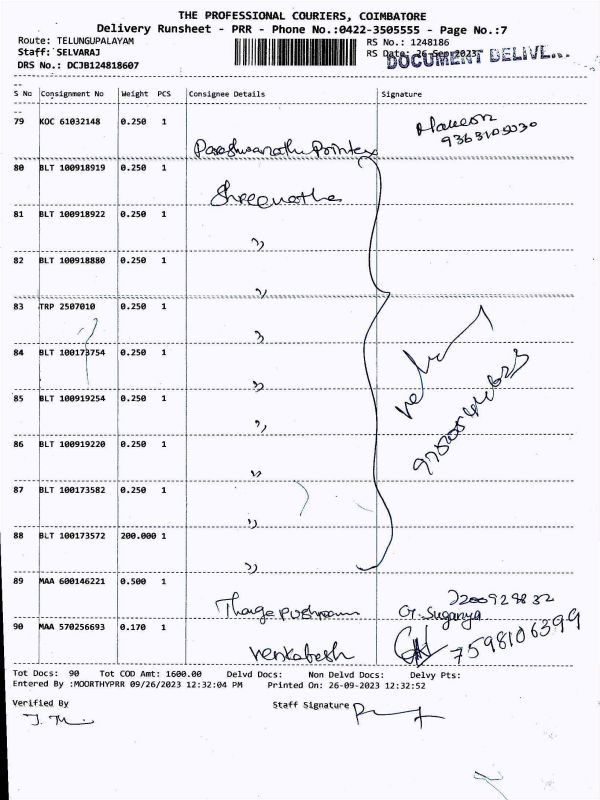 THE PROFESSIONAL COURIERS, COIMBATORE
Delivery Runsheet - PRR - Phone No.:0422-3505555 - Page No.:7
Route: TELUNGUPALAYAM
RS No.: 1248186
Staff: SELVARAJ
RS Date: 26-Sep-2023
DOCUMENT DELIVE...
DRS No.: DCJB124818607
S No Consignment No Weight PCS Consignee Details Signature
79 KOC 61032148 0.250 1
9363105030
Printers
80 BLT 100918919 0.250 1
Shreenatha
81 BLT 100918922 0.250 1
"
82 BLT 100918880 0.250 1
"
83 TRP 2507010 0.250 1
"
84 BLT 100173754 0.250 1
"
85 BLT 100919254 0.250 1
"
86 BLT 100919220 0.250 1
"
87 BLT 100173582 0.250 1
"
88 BLT 100173572 200.000 1
"
89 MAA 600146221 0.500 1
7200929832
G. Suganya
90 MAA 570256693 0.170 1
7598106399
Venkatesh
Tot Docs: 90 Tot COD Amt: 1600.00 Delvd Docs: Non Delvd Docs: Delvy Pts:
Entered By :MOORTHYPRR 09/26/2023 12:32:04 PM Printed On: 26-09-2023 12:32:52
Verified By
Staff Signature